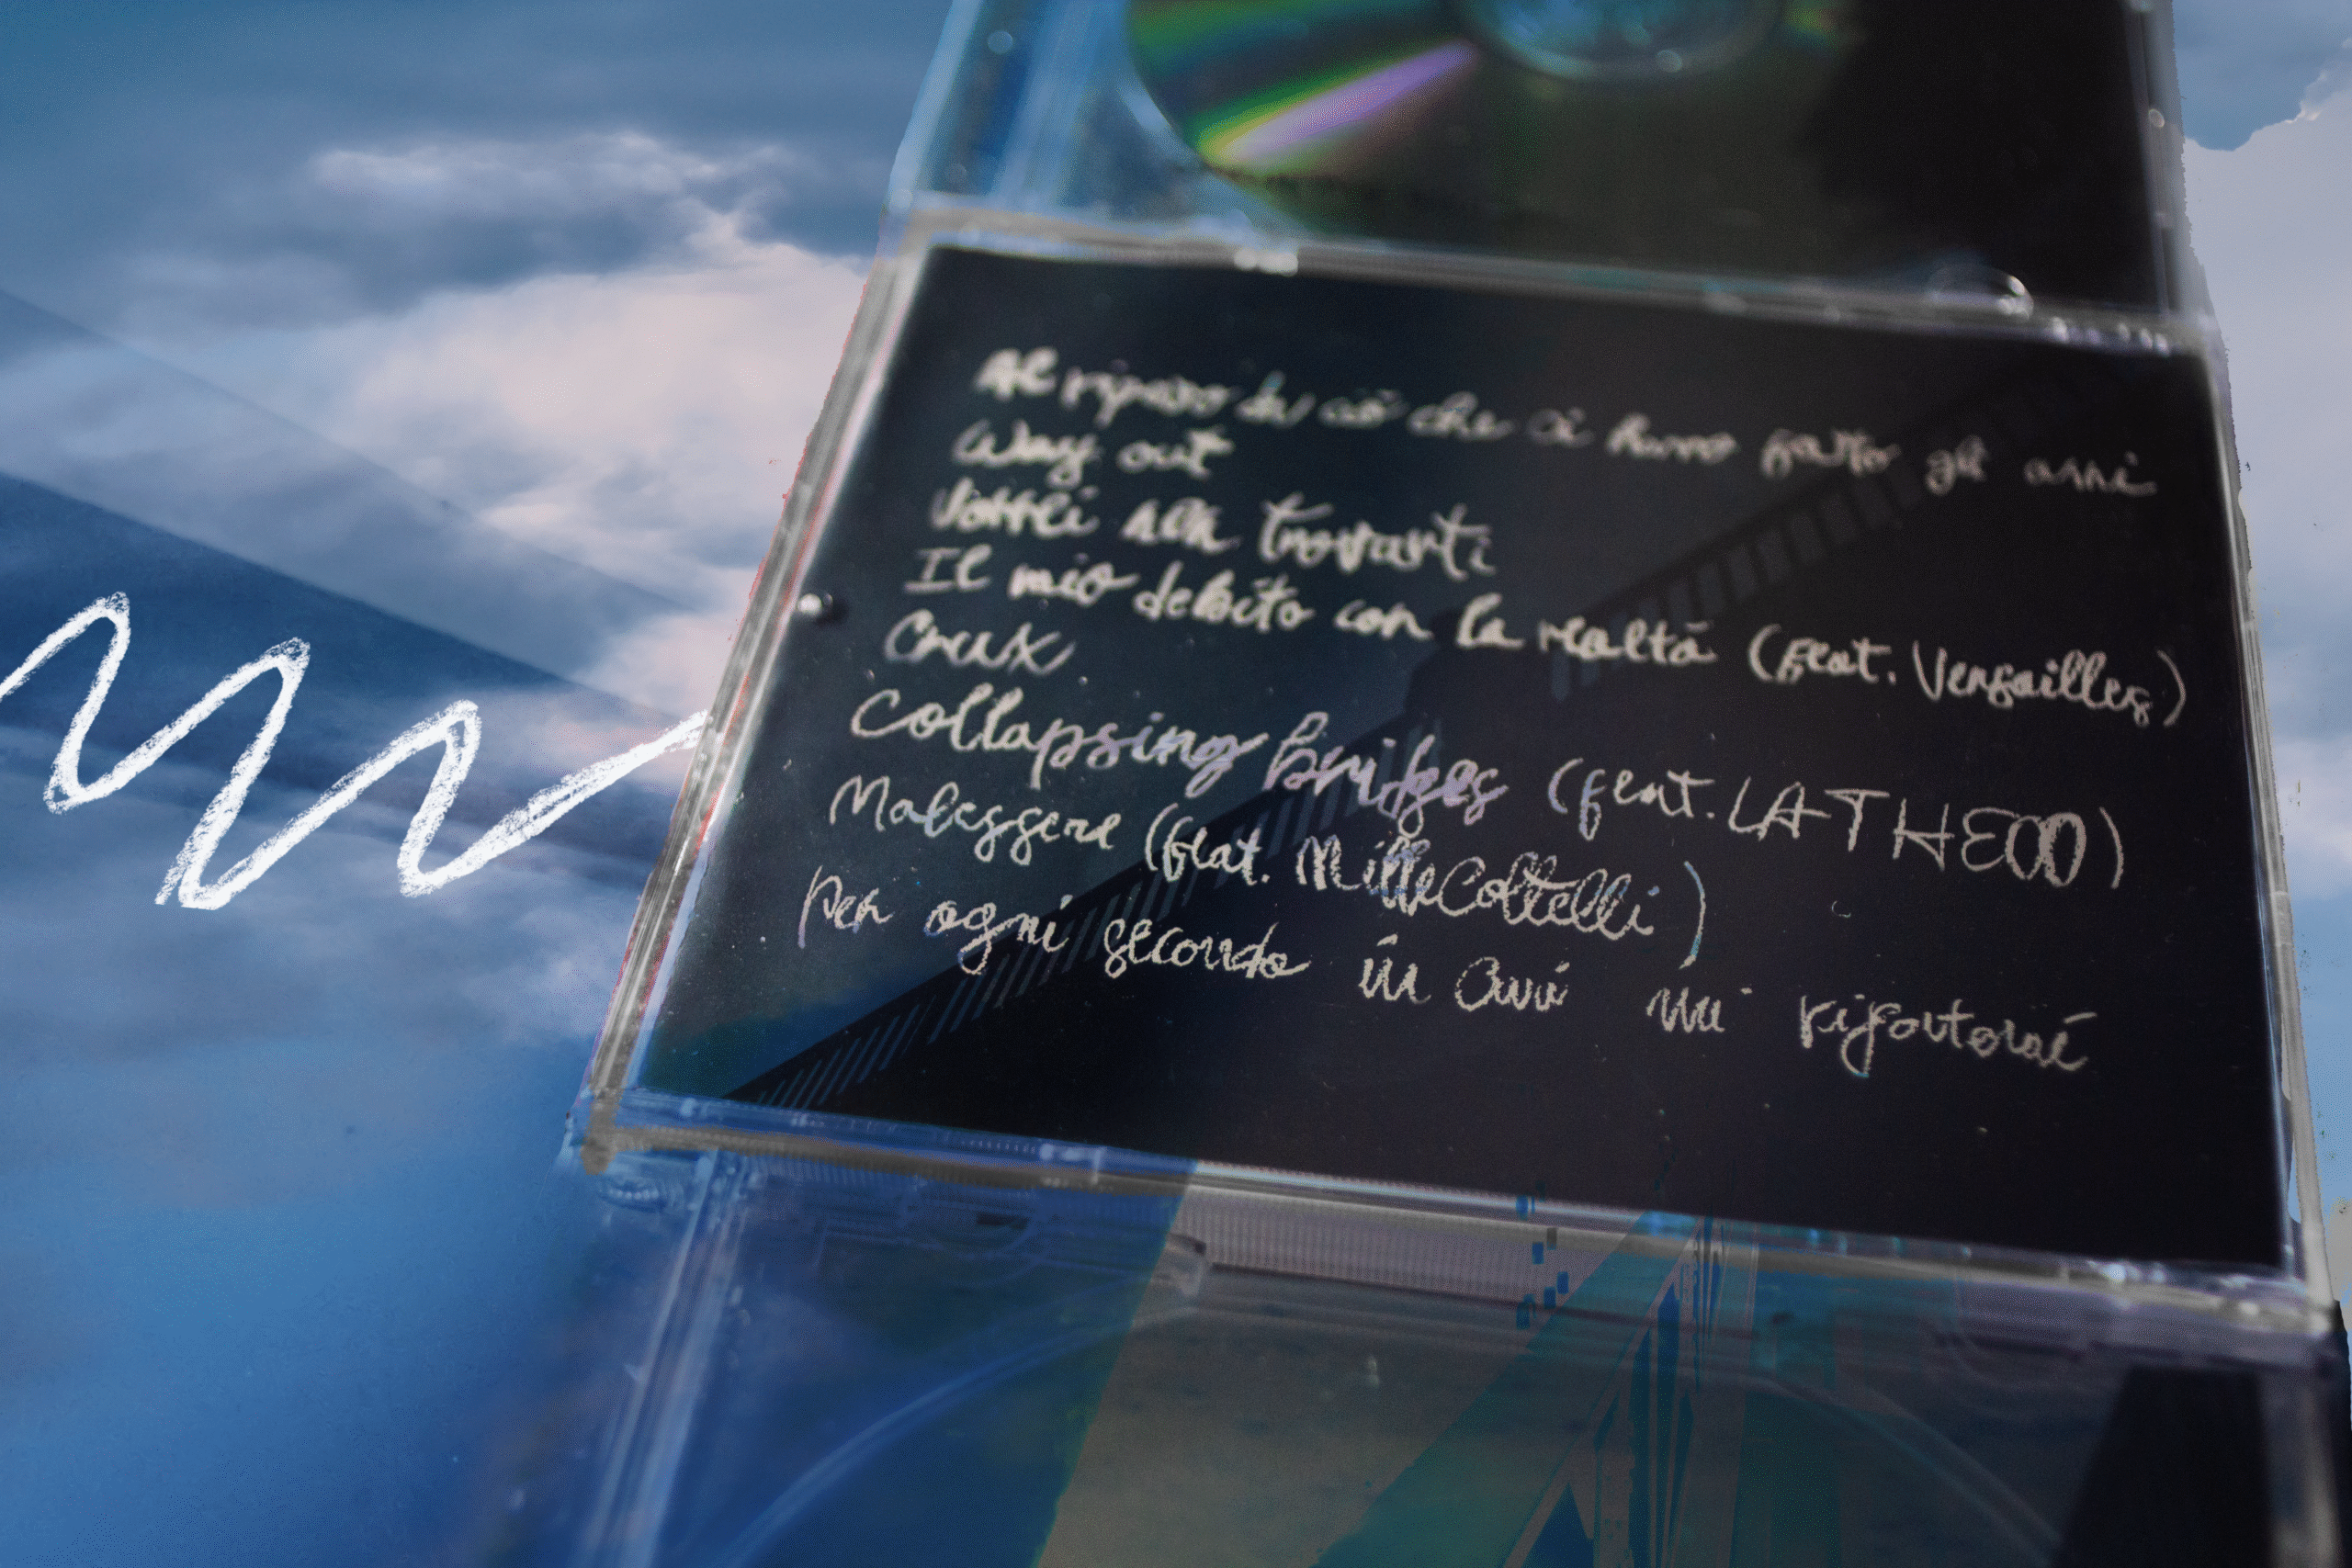 Al riparo da ciò che ci hanno fatto gli anni
Way out
Vorrei non trovarti
Il mio debito con la realtà (feat. Versailles)
Crux
Collapsing bridges (feat. LATHEOD)
Malessere (feat. MilleColtelli)
Per ogni secondo in cui mi riporterai